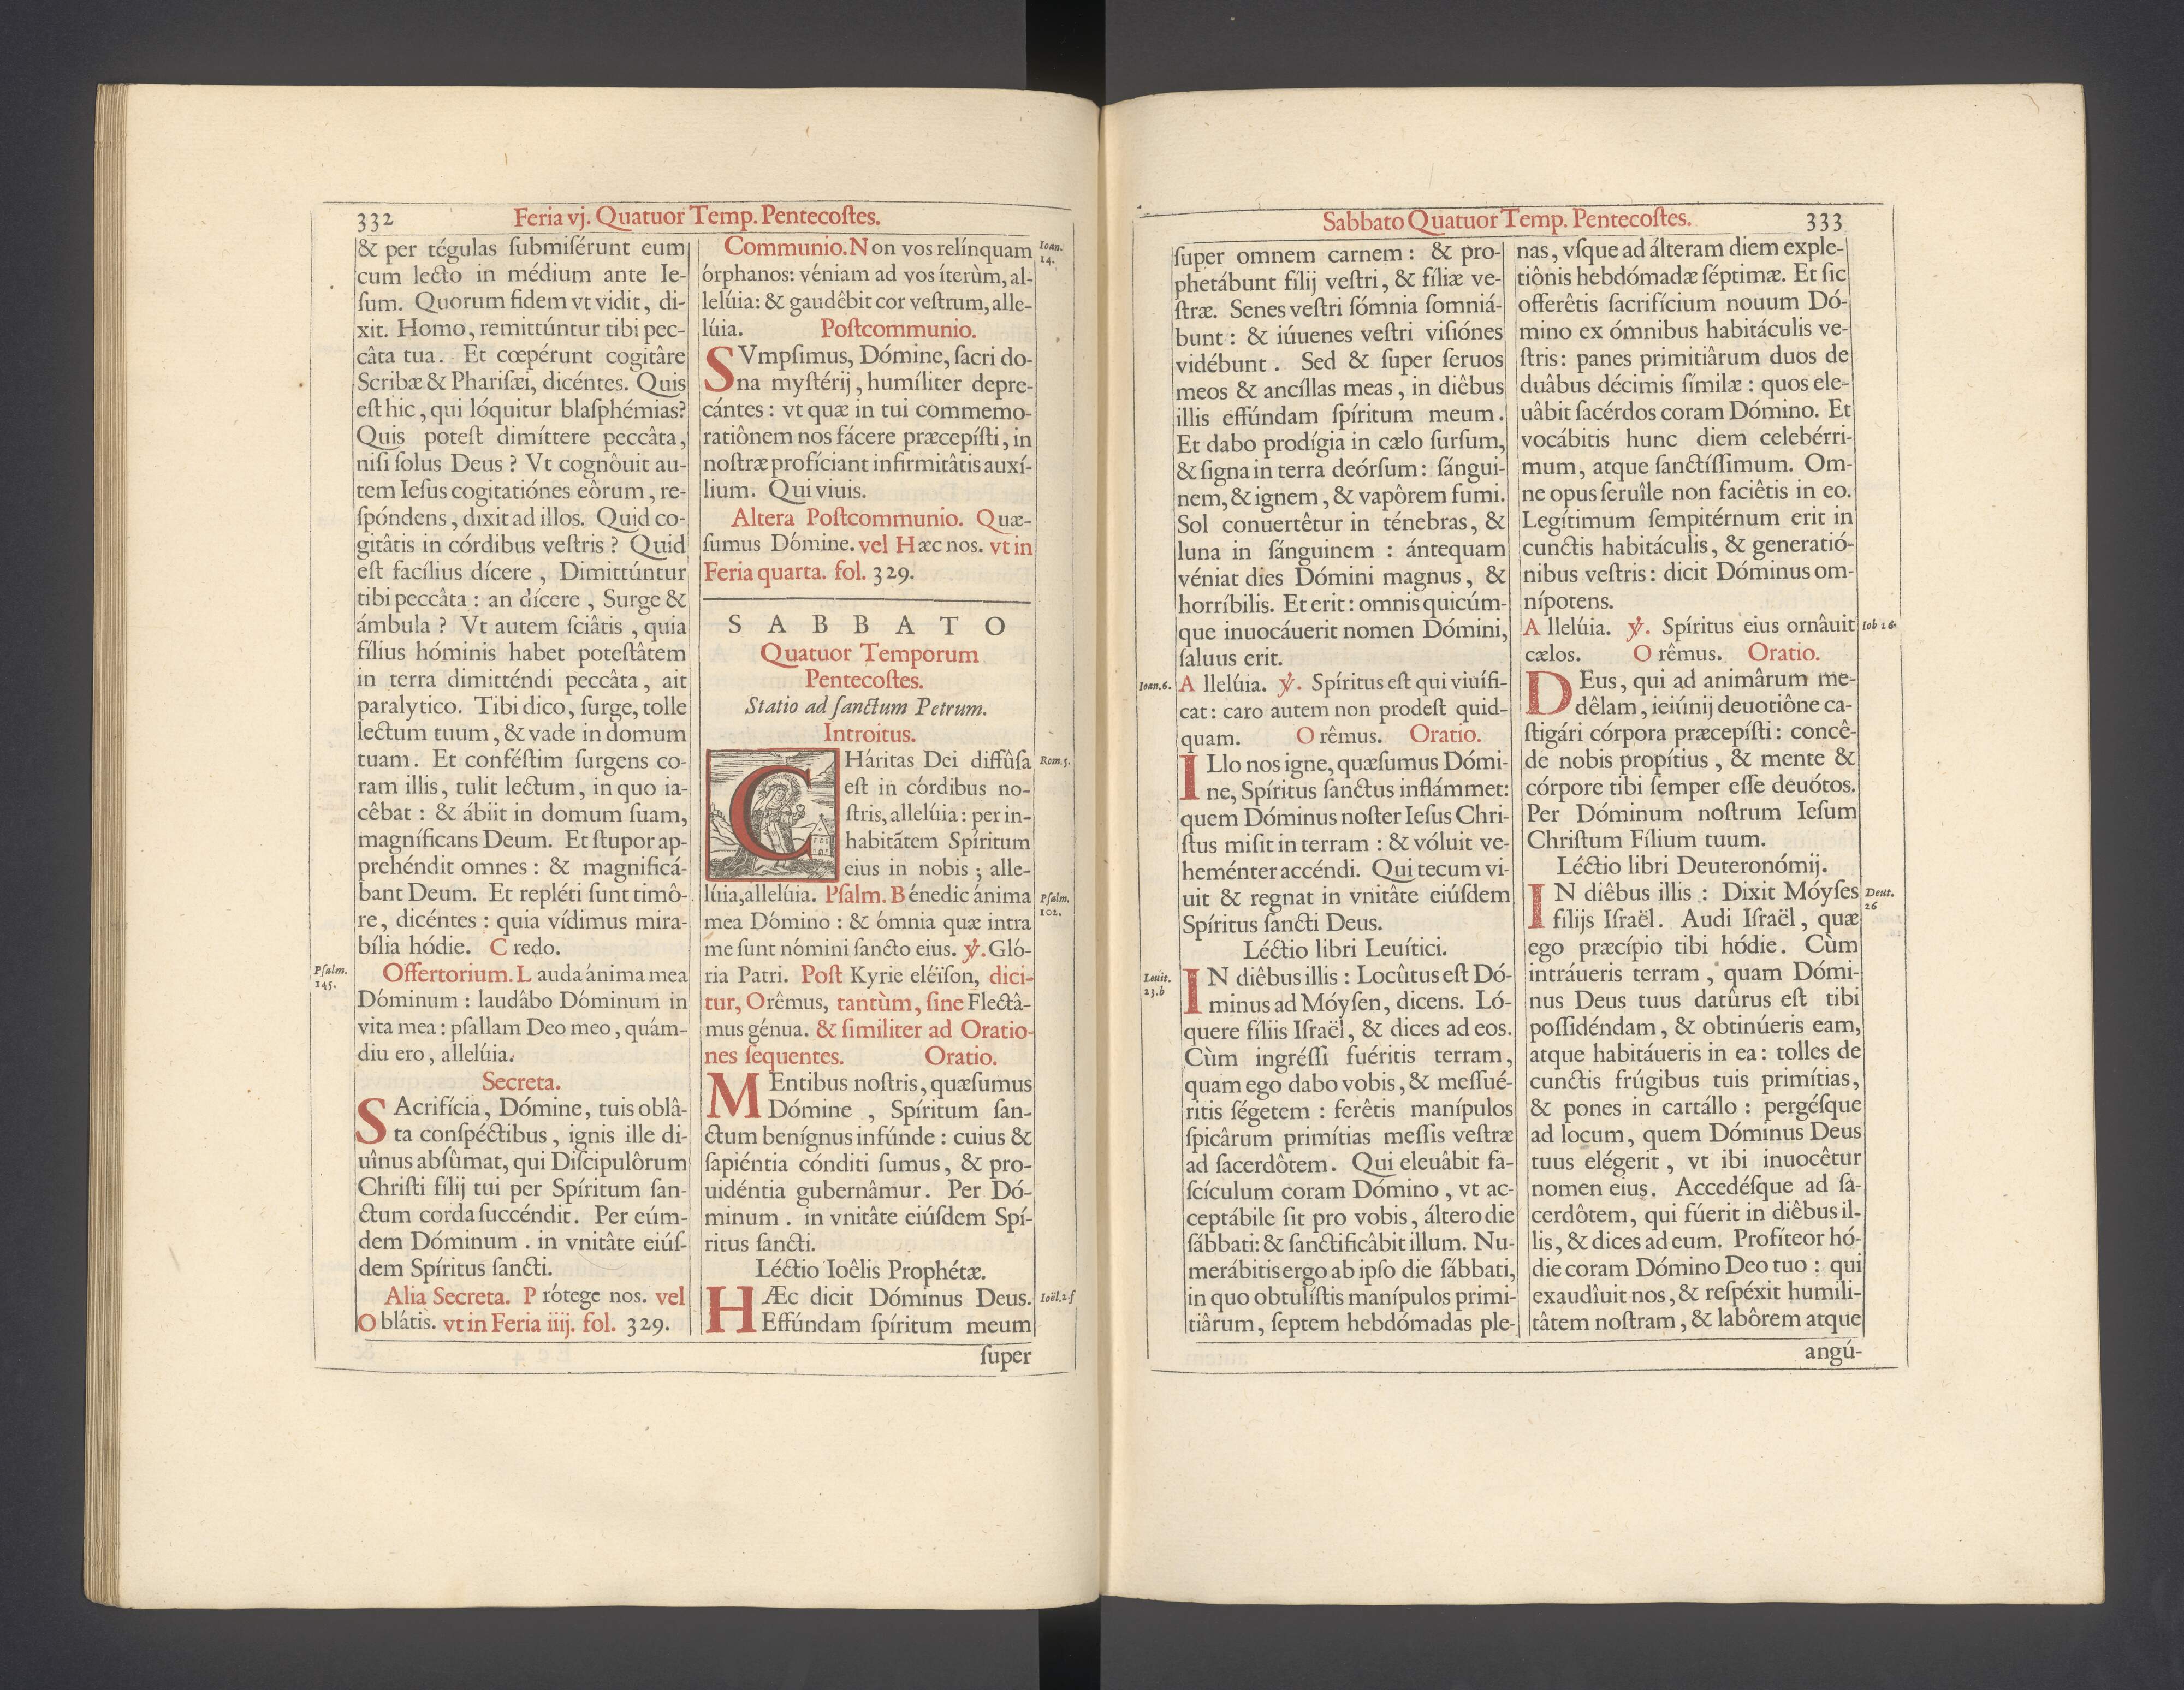 332 Feria vj. Quatuor Temp. Pentecoſtes.
& per tégulas ſubmiſérunt eum
cum lecto in médium ante Ie-
ſum. Quorum fidem vt vidit, di-
xit. Homo, remittúntur tibi pec-
câta tua. Et cœpérunt cogitâre
Scribæ & Phariſæi, dicéntes. Quis
eſt hic, qui lóquitur blaſphémias?
Quis poteſt dimíttere peccâta,
niſi ſolus Deus? Vt cognôuit au-
tem Ieſus cogitatiónes eôrum, re-
ſpóndens, dixit ad illos. Quid co-
gitâtis in córdibus veſtris? Quid
eſt facílius dícere, Dimittúntur
tibi peccâta: an dícere, Surge &
ámbula? Vt autem ſciâtis, quia
fílius hóminis habet poteſtâtem
in terra dimitténdi peccâta, ait
paralytico. Tibi dico, ſurge, tolle
lectum tuum, & vade in domum
tuam. Et conféſtim ſurgens co-
ram illis, tulit lectum, in quo ia-
cêbat: & ábiit in domum ſuam,
magníficans Deum. Et ſtupor ap-
prehéndit omnes: & magnificá-
bant Deum. Et repléti ſunt timô-
re, dicéntes: quia vídimus mira-
bília hódie. Credo.
Pſalm.
145.
Offertorium. Lauda ánima mea
Dóminum: laudâbo Dóminum in
vita mea: pſallam Deo meo, quám-
diu ero, allelúia.
Secreta.
SAcrifícia, Dómine, tuis oblâ-
ta conſpéctibus, ignis ille di-
uînus abſûmat, qui Diſcipulôrum
Chriſti filij tui per Spíritum ſan-
ctum corda ſuccéndit. Per eúm-
dem Dóminum. in vnitâte eiúſ-
dem Spíritus ſancti.
Alia Secreta. Prótege nos. vel
Oblátis. vt in Feria iiij. fol. 329.
Communio. Non vos relínquam
Ioan.
14.
órphanos: véniam ad vos íterùm, al-
lelúia: & gaudêbit cor veſtrum, alle-
lúia. Poſtcommunio.
SVmpſimus, Dómine, ſacri do-
na myſtérij, humíliter depre-
cántes: vt quæ in tui commemo-
ratiônem nos fácere præcepíſti, in
noſtræ profíciant infirmitâtis auxí-
lium. Qui viuis.
Altera Poſtcommunio. Quæ-
ſumus Dómine. vel Hæc nos. vt in
Feria quarta. fol. 329.
SABBATO
Quatuor Temporum
Pentecoſtes.
Statio ad ſanctum Petrum.
Introitus.
CHáritas Dei diffûſa
Rom. 5.
eſt in córdibus no-
ſtris, allelúia: per in-
habitãtem Spíritum
eius in nobis; alle-
lúia, allelúia. Pſalm. Bénedic ánima
Pſalm.
102.
mea Dómino: & ómnia quæ intra
me ſunt nómini ſancto eius. ℣. Gló-
ria Patri. Poſt Kyrie eléïſon, dici-
tur, Orêmus, tantùm, ſine Flectâ-
mus génua. & ſimiliter ad Oratio-
nes ſequentes. Oratio.
MEntibus noſtris, quæſumus
Dómine, Spíritum ſan-
ctum benígnus infúnde: cuius &
ſapiéntia cónditi ſumus, & pro-
uidéntia gubernâmur. Per Dó-
minum. in vnitâte eiúſdem Spí-
ritus ſancti.
Léctio Ioêlis Prophétæ.
HÆc dicit Dóminus Deus.
Ioël. 2. f
Effúndam ſpíritum meum
ſuper
Sabbato Quatuor Temp. Pentecoſtes. 333
ſuper omnem carnem: & pro-
phetábunt fílij veſtri, & fíliæ ve-
ſtræ. Senes veſtri ſómnia ſomniá-
bunt: & iúuenes veſtri viſiónes
vidébunt. Sed & ſuper ſeruos
meos & ancíllas meas, in diêbus
illis effúndam ſpíritum meum.
Et dabo prodígia in cælo ſurſum,
& ſigna in terra deórſum: ſángui-
nem, & ignem, & vapôrem fumi.
Sol conuertêtur in ténebras, &
luna in ſánguinem: ántequam
véniat dies Dómini magnus, &
horríbilis. Et erit: omnis quicúm-
que inuocáuerit nomen Dómini,
ſaluus erit.
Ioan. 6.
Allelúia. ℣. Spíritus eſt qui viuífi-
cat: caro autem non prodeſt quid-
quam. Orêmus. Oratio.
ILlo nos igne, quæſumus Dómi-
ne, Spíritus ſanctus inflámmet:
quem Dóminus noſter Ieſus Chri-
ſtus miſit in terram: & vóluit ve-
heménter accéndi. Qui tecum vi-
uit & regnat in vnitâte eiúſdem
Spíritus ſancti Deus.
Léctio libri Leuítici.
Leuit.
23. b
IN diêbus illis: Locûtus eſt Dó-
minus ad Móyſen, dicens. Ló-
quere fíliis Iſraël, & dices ad eos.
Cùm ingréſſi fuéritis terram,
quam ego dabo vobis, & meſſué-
ritis ſégetem: ferêtis manípulos
ſpicârum primítias meſſis veſtræ
ad ſacerdôtem. Qui eleuâbit fa-
ſcículum coram Dómino, vt ac-
ceptábile ſit pro vobis, áltero die
ſábbati: & ſanctificâbit illum. Nu-
merábitis ergo ab ipſo die ſábbati,
in quo obtulíſtis manípulos primi-
tiârum, ſeptem hebdómadas ple-
nas, vſque ad álteram diem exple-
tiônis hebdómadæ ſéptimæ. Et ſic
offerêtis ſacrifícium nouum Dó-
mino ex ómnibus habitáculis ve-
ſtris: panes primitiârum duos de
duâbus décimis ſímilæ: quos ele-
uâbit ſacérdos coram Dómino. Et
vocábitis hunc diem celebérri-
mum, atque ſanctíſſimum. Om-
ne opus ſeruîle non faciêtis in eo.
Legítimum ſempitérnum erit in
cunctis habitáculis, & generatió-
nibus veſtris: dicit Dóminus om-
nípotens.
Allelúia. ℣. Spíritus eius ornâuit
Iob 26.
cælos. Orêmus. Oratio.
DEus, qui ad animârum me-
dêlam, ieiúnij deuotiône ca-
ſtigári córpora præcepíſti: concê-
de nobis propítius, & mente &
córpore tibi ſemper eſſe deuótos.
Per Dóminum noſtrum Ieſum
Chriſtum Fílium tuum.
Léctio libri Deuteronómij.
IN diêbus illis: Dixit Móyſes
Deut.
26
filijs Iſraël. Audi Iſraël, quæ
ego præcípio tibi hódie. Cùm
intráueris terram, quam Dómi-
nus Deus tuus datûrus eſt tibi
poſſidéndam, & obtinúeris eam,
atque habitáueris in ea: tolles de
cunctis frúgibus tuis primítias,
& pones in cartállo: pergéſque
ad locum, quem Dóminus Deus
tuus elégerit, vt ibi inuocêtur
nomen eius. Accedéſque ad ſa-
cerdôtem, qui fúerit in diêbus il-
lis, & dices ad eum. Profíteor hó-
die coram Dómino Deo tuo: qui
exaudîuit nos, & reſpéxit humili-
tâtem noſtram, & labôrem atque
angú-